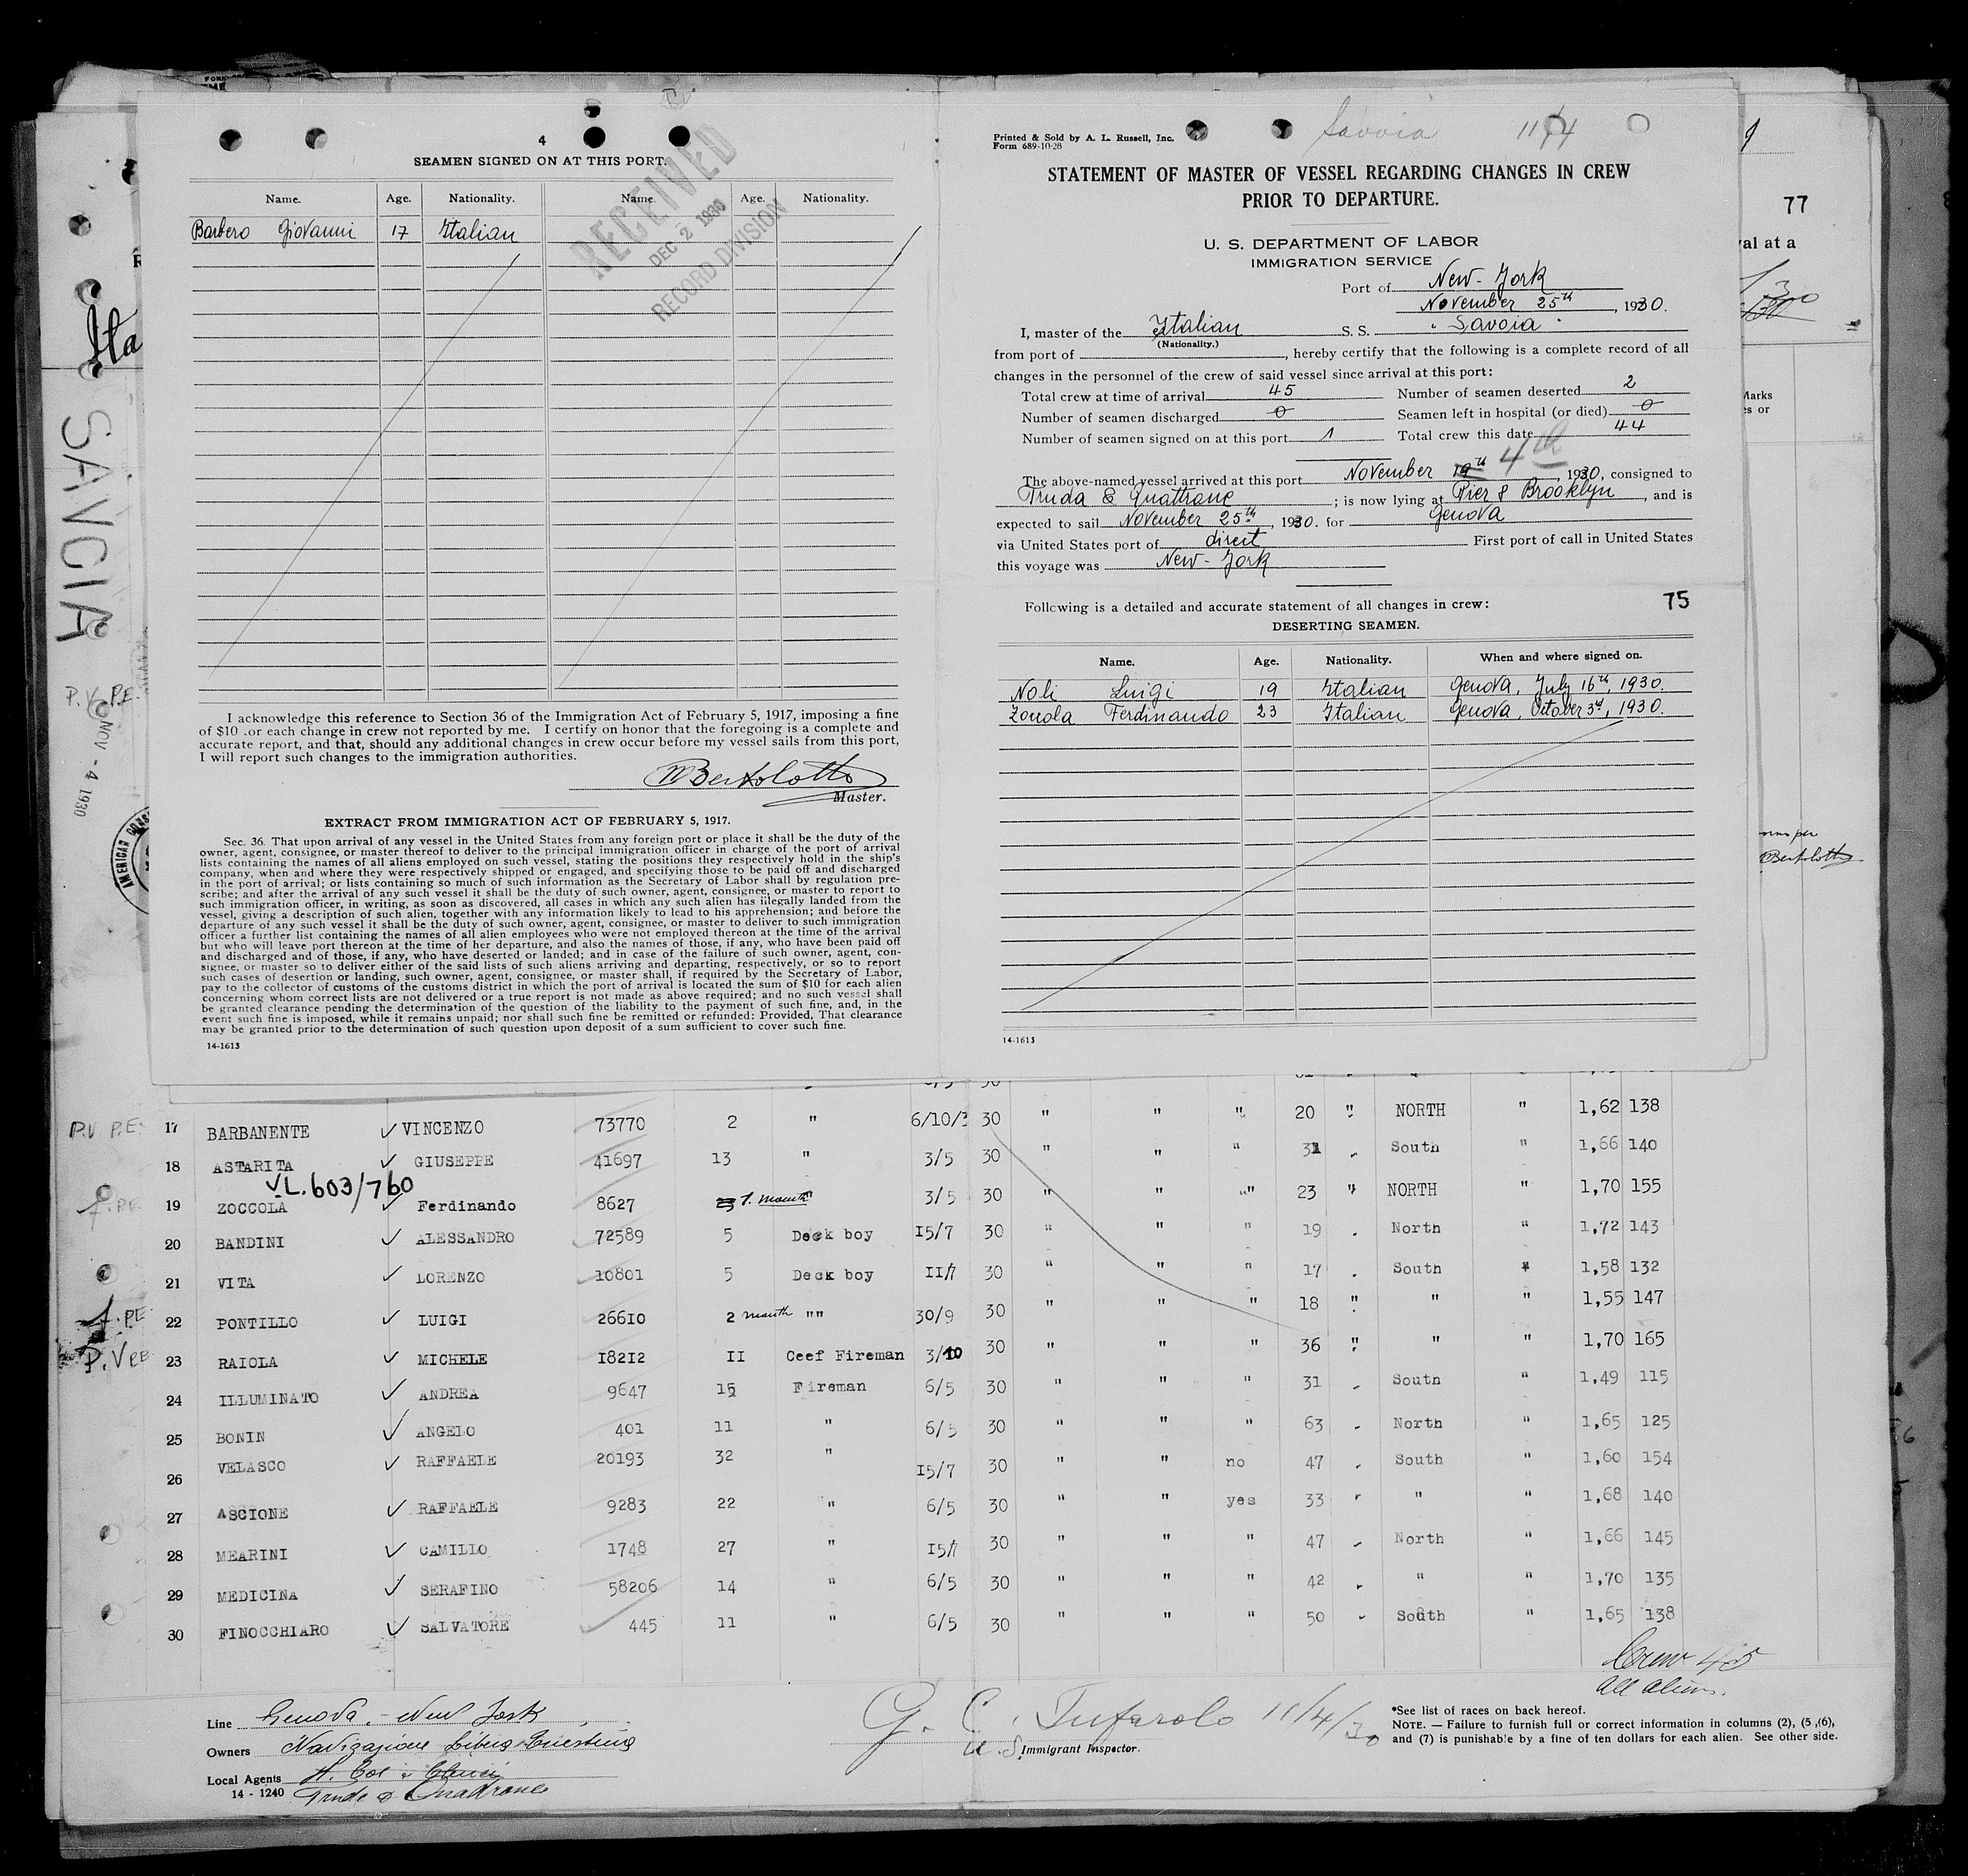 4
SEAMEN SIGNED ON AT THIS PORT.
Name. Age. Nationality. Name. Age. Nationality.
Barbero Giovanni 17 Italian
RECEIVED
DEC 2 1930
RECORD DIVISION
I acknowledge this reference to Section 36 of the Immigration Act of February 5, 1917, imposing a fine
of $10 .or each change in crew not reported by me. I certify on honor that the foregoing is a complete and
accurate report, and that, should any additional changes in crew occur before my vessel sails from this port,
I will report such changes to the immigration authorities.
Bertolotto
Master.
EXTRACT FROM IMMIGRATION ACT OF FEBRUARY 5, 1917.
Sec. 36. That upon arrival of any vessel in the United States from any foreign port or place it shall be the duty of the
owner, agent, consignee, or master thereof to deliver to the principal immigration officer in charge of the port of arrival
lists containing the names of all aliens employed on such vessel, stating the positions they respectively hold in the ship's
company, when and where they were respectively shipped or engaged, and specifying those to be paid off and discharged
in the port of arrival; or lists containing so much of such information as the Secretary of Labor shall by regulation pre-
scribe; and after the arrival of any such vessel it shall be the duty of such owner, agent, consignee, or master to report to
such immigration officer, in writing, as soon as discovered, all cases in which any such alien has illegally landed from the
vessel, giving a description of such alien, together with any information likely to lead to his apprehension; and before the
departure of any such vessel it shall be the duty of such owner, agent, consignee, or master to deliver to such immigration
officer a further list containing the names of all alien employees who were not employed thereon at the time of the arrival
but who will leave port thereon at the time of her departure, and also the names of those, if any, who have been paid off
and discharged and of those, if any, who have deserted or landed; and in case of the failure of such owner, agent, con-
signee, or master so to deliver either of the said lists of such aliens arriving and departing, respectively, or so to report
such cases of desertion or landing, such owner, agent, consignee, or master shall, if required by the Secretary of Labor,
pay to the collector of customs of the customs district in which the port of arrival is located the sum of $10 for each alien
concerning whom correct lists are not delivered or a true report is not made as above required; and no such vessel shall
be granted clearance pending the determination of the question of the liability to the payment of such fine, and, in the
event such fine is imposed, while it remains unpaid; nor shall such fine be remitted or refunded: Provided, That clearance
may be granted prior to the determination of such question upon deposit of a sum sufficient to cover such fine.
14-1613
Printed & Sold by A. L. Russell, Inc.
Form 689-10-28
Savoia 11/4
STATEMENT OF MASTER OF VESSEL REGARDING CHANGES IN CREW
PRIOR TO DEPARTURE.
U. S. DEPARTMENT OF LABOR
IMMIGRATION SERVICE
Port of New-York
November 25th, 1930.
I, master of the Italian S. S. "Savoia"
(Nationality.)
from port of , hereby certify that the following is a complete record of all
changes in the personnel of the crew of said vessel since arrival at this port:
Total crew at time of arrival 45 Number of seamen deserted 2
Number of seamen discharged 0 Seamen left in hospital (or died) 0
Number of seamen signed on at this port 1 Total crew this date 44
The above-named vessel arrived at this port November 19th 4th, 1930, consigned to
Truda & Quattrone ; is now lying at Pier 8 Brooklyn, and is
expected to sail November 25th, 1930. for Genova
via United States port of direct First port of call in United States
this voyage was New-York
Following is a detailed and accurate statement of all changes in crew: 75
DESERTING SEAMEN.
Name. Age. Nationality. When and where signed on.
Noli Luigi 19 Italian Genova, July 16th, 1930.
Zonola Ferdinando 23 Italian Genova, October 3d, 1930.
14-1613
77
val at a
Marks
es or
Bertolotto
Ita
SAVOIA
P.V. P.E.
NOV - 4 1930
AMERICAN
P.V P.E. 17 BARBANENTE ✓ VINCENZO 73770 2 " 6/10/3 30 " " " 20 " NORTH " 1,62 138
18 ASTARITA ✓ GIUSEPPE 41697 13 " 3/5 30 " " " South " 1,66 140
VL.603/760
19 ZOCCOLA ✓ Ferdinando 8627 1. month " 3/5 30 " " " 23 " NORTH " 1,70 155
20 BANDINI ✓ ALESSANDRO 72589 5 Deck boy I5/7 30 " " " 19 . North " 1,72 143
21 VITA ✓ LORENZO 10801 5 Deck boy II/7 30 " " " 17 . South " 1,58 132
PE 22 PONTILLO ✓ LUIGI 26610 2 month "" 30/9 30 " " " 18 " " " 1,55 147
P.V PE 23 RAIOLA ✓ MICHELE I82I2 II Ceef Fireman 3/10 30 " " " 36 " " " 1,70 165
24 ILLUMINATO ✓ ANDREA 9647 15 Fireman 6/5 30 " " " 31 South " 1,49 115
25 BONIN ✓ ANGELO 401 11 " 6/5 30 " " " 63 North " 1,65 125
26 VELASCO ✓ RAFFAELE 20193 32 " I5/7 30 " " no 47 South " 1,60 154
27 ASCIONE ✓ RAFFAELE 9283 22 " 6/5 30 " " yes 33 " " 1,68 140
28 MEARINI ✓ CAMILLO 1748 27 " I5/7 30 " " " 47 North " 1,66 145
29 MEDICINA ✓ SERAFINO 58206 14 " 6/5 30 " " " 42 " " 1,70 135
30 FINOCCHIARO ✓ SALVATORE 445 11 " 6/5 30 " " " 50 South " 1,65 138
Crew 45
all aliens.
Line Genova - New York
Owners Navigazione Libera Triestina
Local Agents
14 - 1240 Truda & Quadrone
G. C. Tufarolo 11/4/30
U. S. Immigrant Inspector.
*See list of races on back hereof.
NOTE. — Failure to furnish full or correct information in columns (2), (5 ,(6),
and (7) is punishable by a fine of ten dollars for each alien. See other side.